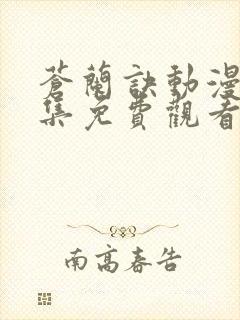 蒼蘭訣動漫
集免費觀看
南高春告